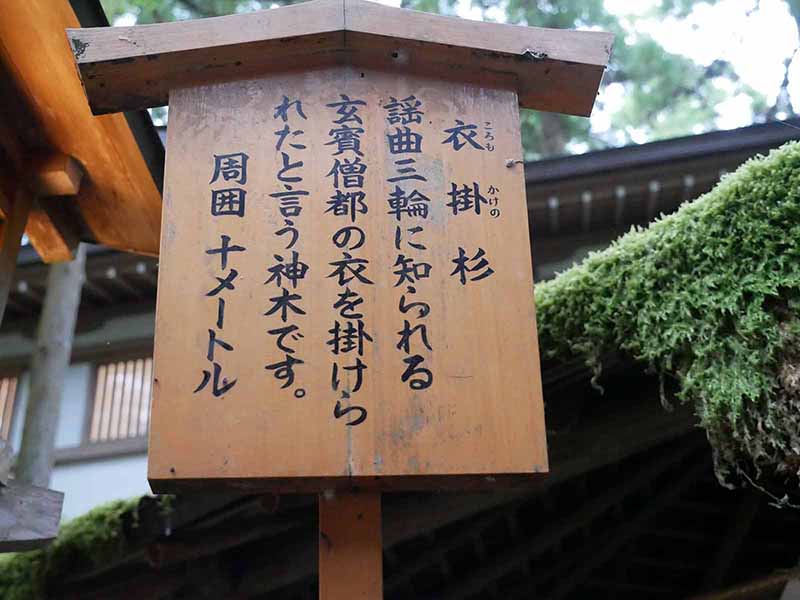 衣掛杉
ころも かけの
謡曲三輪に知られる
玄賓僧都の衣を掛けら
れたと言う神木です。
周囲 十メートル